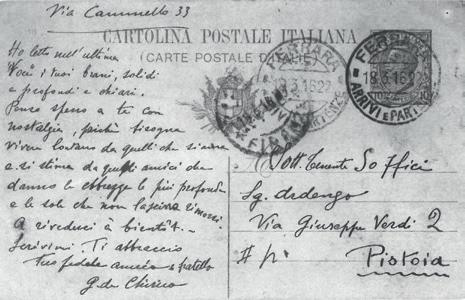 Via Cammello 33
CARTOLINA POSTALE ITALIANA
(CARTE POSTALE D'ITALIE)
Ho letto nell'ultima
Voce i tuoi brani, solidi
e profondi e chiari.
Penso spesso a te con
nostalgia, perchè bisogna
vivere lontano da quelli che si ama
e si stima da quelli amici che
danno le ebbrezze le più profonde
e le sole che non lasciano rimorsi.
A rivederci à bientôt. –
Scrivimi. Ti abbraccio
tuo fedele amico e fratello
G. de Chirico
FERRARA
18.3.16 22
ARRIVI E PARTENZE
FERRARA
18.3.16 22
ARRIVI E PARTENZE
Sott. Tenente Soffici
Sg. Ardengo
Via Giuseppe Verdi 2
Pistoia